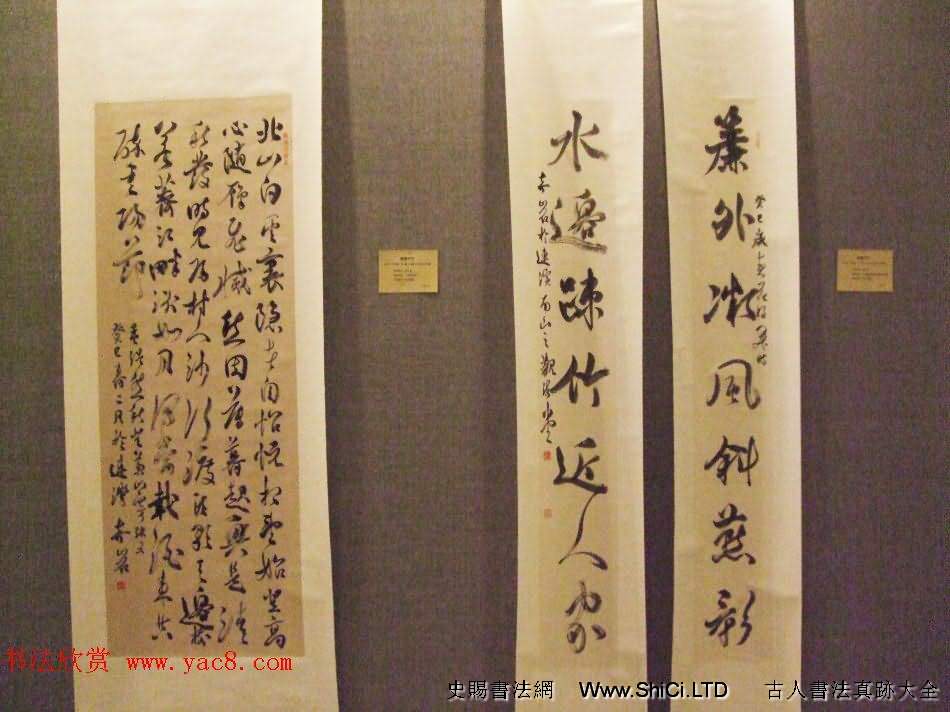 簾外微風斜燕影
水邊疎竹近人家
北山白雲裏隱者自怡悅相望始登高
心隨雁飛滅愁因薄暮起興是清
秋發時見歸村人沙行渡頭歇天邊樹
若薺江畔洲如月何當載酒來共
醉重陽節
孟浩然秋登蘭山寄張五
癸巳春二月於
书法欣赏 www.yac8.com
史賜書法網 Www.ShiCi.LTD 古人書法真跡大全